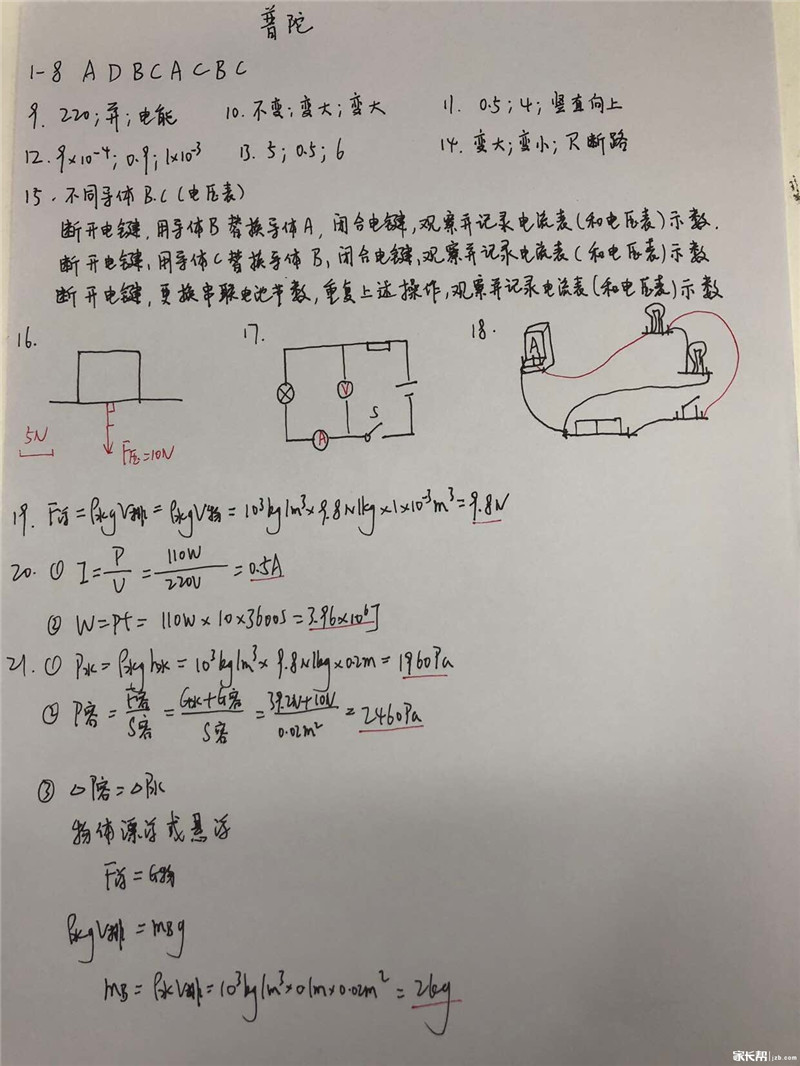 普陀
1-8 A D B C A C B C
9. 220;并;电能 10. 不变;变大;变大 11. 0.5;4;竖直向上
12. 9×10⁻⁴;0.9;1×10⁻³ 13. 5;0.5;6 14. 变大;变小;R断路
15. 不同导体B.C(电压表)
断开电键,用导体B替换导体A,闭合电键,观察并记录电流表(和电压表)示数.
断开电键,用导体C替换导体B,闭合电键,观察并记录电流表(和电压表)示数
断开电键,更换串联电池节数,重复上述操作,观察并记录电流表(和电压表)示数
16. 17. 18.
A
V
5N
F压=10N
A
S
19. F浮=ρ水gV排=ρ水gV物=10³kg/m³×9.8N/kg×1×10⁻³m³=9.8N
20. ① I=P/U=110W/220V=0.5A
② W=Pt=110W×10×3600s=3.96×10⁶J
21. ① P水=ρ水gh水=10³kg/m³×9.8N/kg×0.2m=1960Pa
② P容=F容/S容=(G水+G容)/S容=(39.2N+10N)/0.02m²=2460Pa
③ △P容=△P水
物体漂浮或悬浮
F浮=G物
ρ水gV排=mBg
mB=ρ水V排=10³kg/m³×0.1m×0.02m²=2kg
家长帮 jzb.com